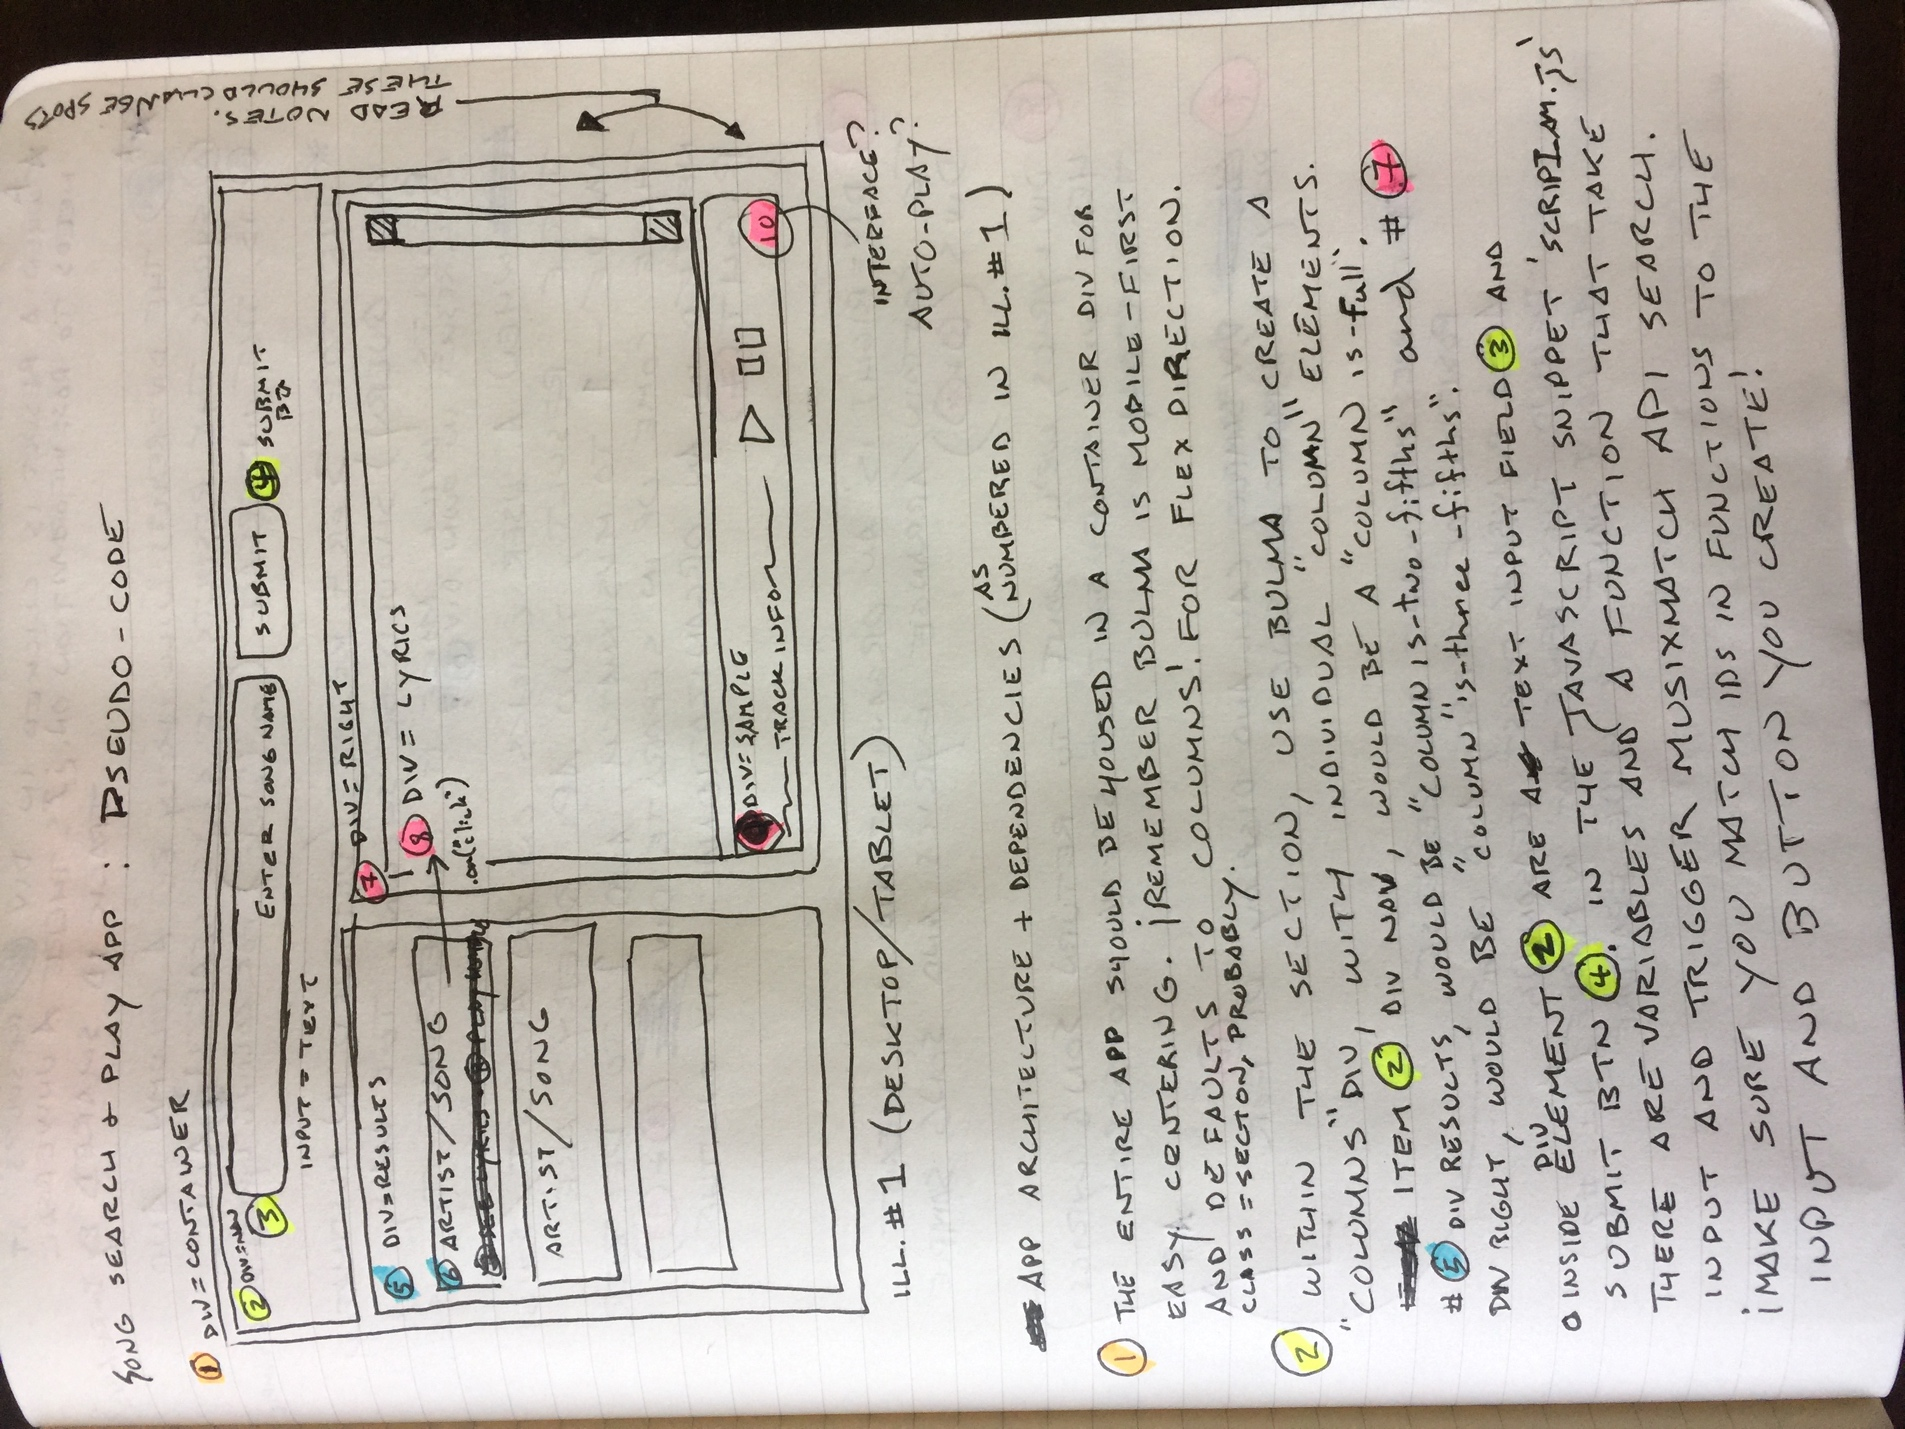 SONG SEARCH + PLAY APP : PSEUDO-CODE
① DIV = CONTAINER
② DIV=NAV
③
ENTER SONG NAME
SUBMIT
④ SUBMIT
INPUT = TEXT
⑤ DIV=RESULTS
⑥ ARTIST/SONG
ARTIST/SONG
⑦ DIV = RIGHT
⑧ DIV = LYRICS
.on("click")
DIV=SAMPLE
TRACK INFO
10
READ NOTES.
THESE SHOULD CHANGE SPOTS
INTERFACE?
AUTO-PLAY?
ILL. #1 (DESKTOP/TABLET)
APP ARCHITECTURE + DEPENDENCIES (AS NUMBERED IN ILL. #1)
① THE ENTIRE APP SHOULD BE HOUSED IN A CONTAINER DIV FOR
EASY CENTERING. ¡REMEMBER BULMA IS MOBILE-FIRST
AND DEFAULTS TO COLUMNS! FOR FLEX DIRECTION.
CLASS = SECTON, PROBABLY.
② WITHIN THE SECTION, USE BULMA TO CREATE A
"COLUMNS" DIV, WITH INDIVIDUAL "COLUMN" ELEMENTS.
ITEM ②, DIV NAV, WOULD BE A "COLUMN IS-full".
# ⑤ DIV RESULTS, WOULD BE "COLUMN IS-two-fifths" and # ⑦
DIV RIGHT, WOULD BE "COLUMN" "is-three-fifths".
O INSIDE DIV ELEMENT ② ARE TEXT INPUT FIELD ③ AND
SUBMIT BTN ④. IN THE JAVASCRIPT SNIPPET 'SCRIPLAM.JS'
THERE ARE VARIABLES AND A FUNCTION THAT TAKE
INPUT AND TRIGGER MUSIXMATCH API SEARCH.
¡MAKE SURE YOU MATCH IDS IN FUNCTIONS TO THE
INPUT AND BUTTON YOU CREATE!